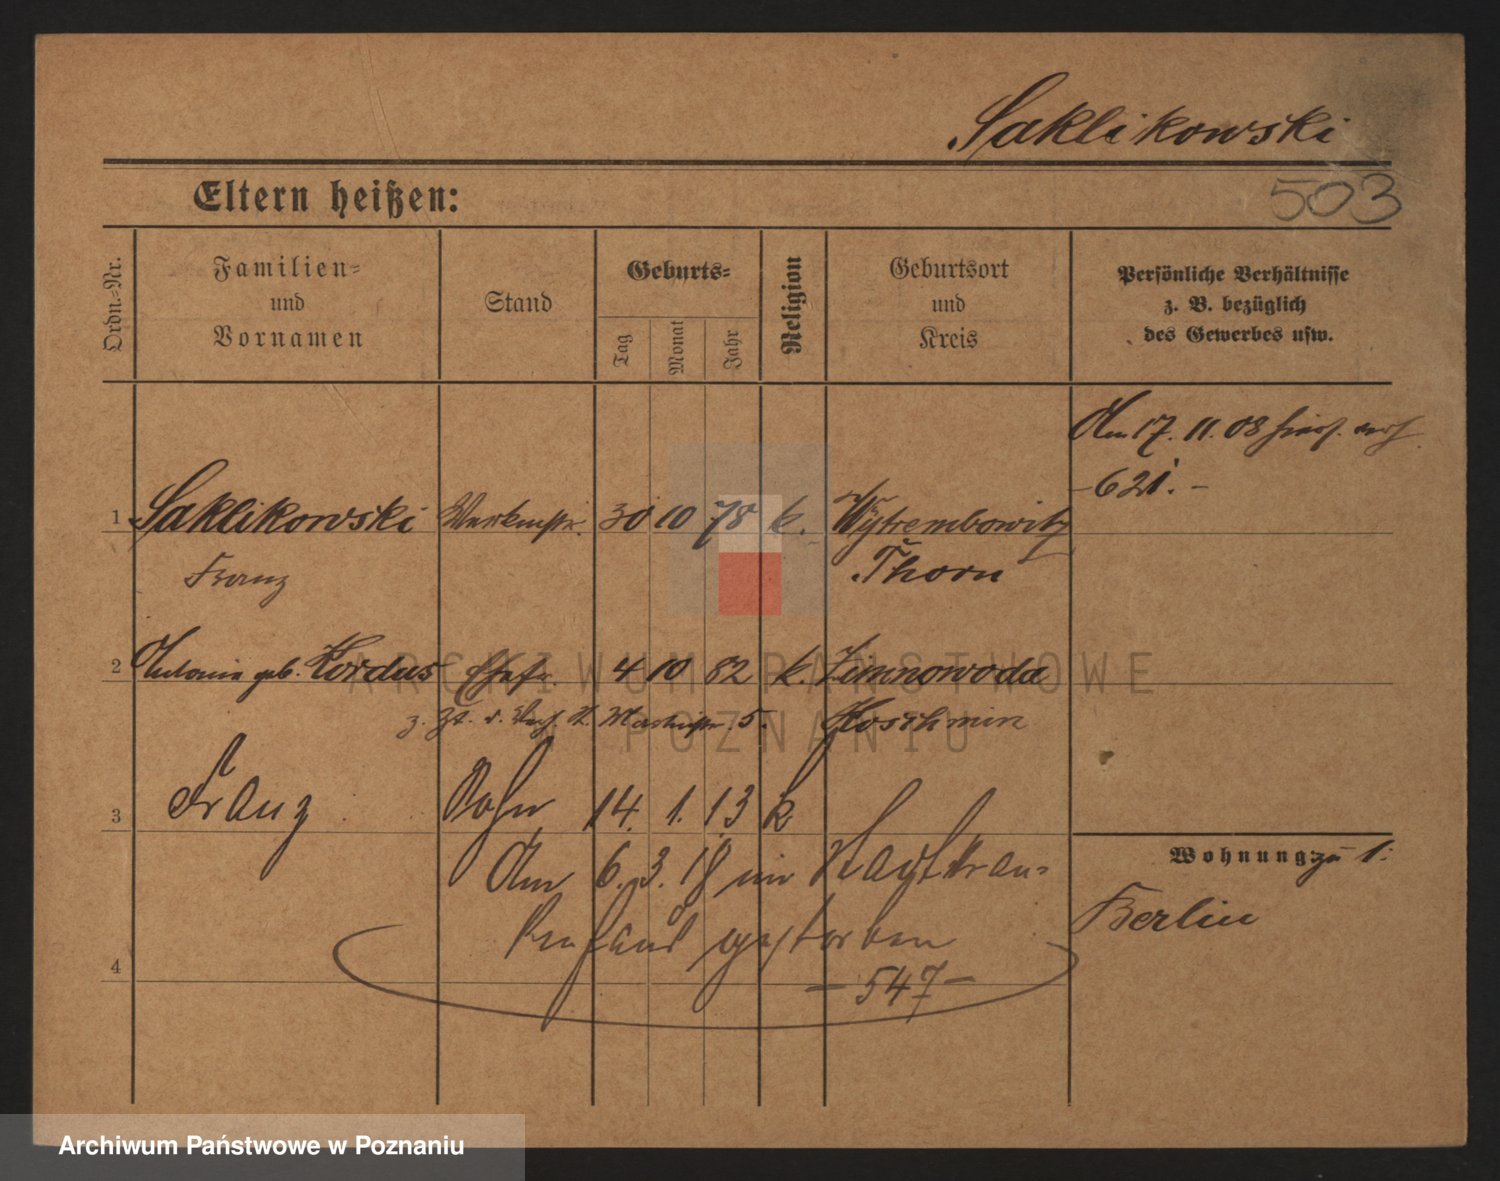 Saklikowski
Eltern heißen:
503
Ordn.-Nr.
Familien-
und
Vornamen
Stand
Geburts-
Tag
Monat
Jahr
Religion
Geburtsort
und
Kreis
Persönliche Verhältnisse
z. B. bezüglich
des Gewerbes usw.
Am 17. 11. 08
- 621. -
1 Saklikowski 30 10 78 k. Wytrembowitz
Franz Thorn
2 Antonie geb. Kordus Ehefr. 4 10 82 k. Zimnowoda
z. Zt. 5. Koschmin
3 Franz Sohn 14. 1. 13 k.
Am 6. 3. 18 im Stadtkran-
kenhaus gestorben
4 - 547 -
Wohnung zu 1.
Berlin
ARCHIWUM PAŃSTWOWE
W POZNANIU
Archiwum Państwowe w Poznaniu